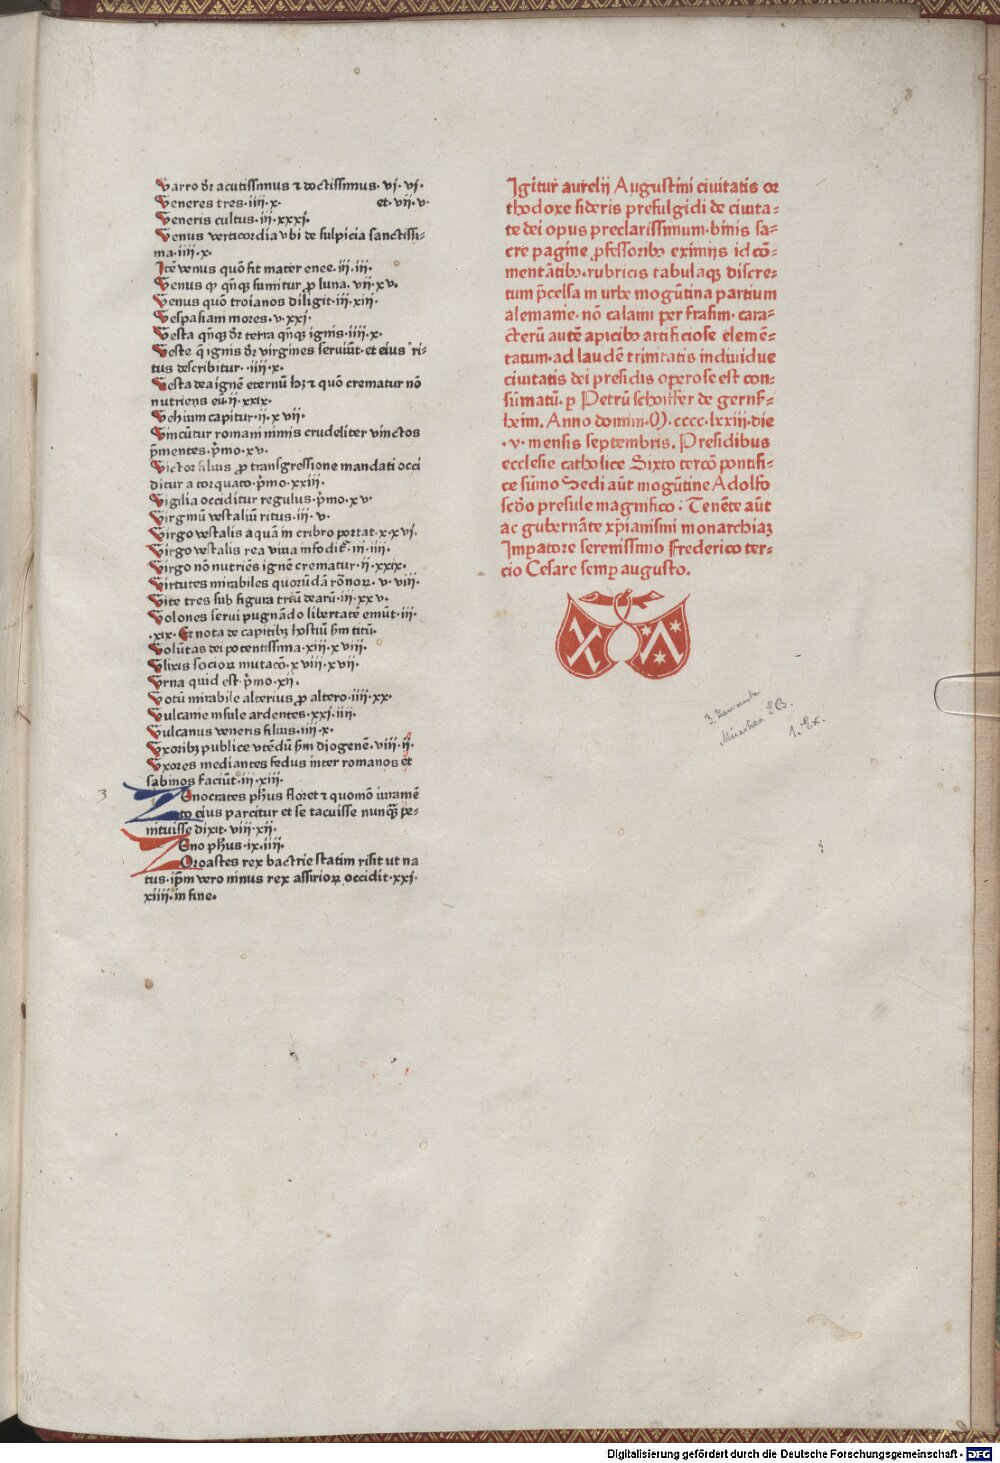 Varro dr̄ acutissimus ⁊ doctissimus· vj· vj·
Veneres tres· iiij· x· et· vij· v·
Veneris cultus· iij· xxxj·
Venus verticordia vbi de sulpicia sanctissi⸗
ma· iiij· x·
Itē venus quō fit mater enee· iij· iij·
Venus ꝙ qn̄qꝫ sumitur ꝓ luna· vij· xv·
Venus quō troianos diligit· iij· xiij·
Vespasiam mores· v· xxj·
Vesta qn̄qꝫ dr̄ terra qn̄qꝫ ignis· iiij· x·
Veste q̄ ignis dr̄ virgines seruiūt· et eius ri⸗
tus describitur· iiij· x·
Vesta dea ignē eternū hꝫ ⁊ quō crematur nō
nutriens eū· ij· xxix·
Vehium capitur· ij· xvij·
Vincūtur romani nimis crudeliter vinctos
p̄mentes· p̄mo· xv·
Victor filius ꝓ transgressione mandati occi
ditur a torquato· p̄mo· xxiij·
Vigilia occiditur regulus· p̄mo· xv·
Virginū vestaliū ritus· iij· v·
Virgo vestalis aquā in cribro portat· x· xvj·
Virgo vestalis rea viua infodit᷑· iij· iiij·
Virgo nō nutriēs ignē crematur· ij· xxix·
Virtutes mirabiles quorūdā rōnoꝝ· v· viij·
Vite tres sub figura triū dearū· iij· xxv·
Volones serui pugnādo libertatē emūt· iij·
·xix· Et nota de capitibꝫ hostiū ẜm titū·
Volūtas dei potentissima· xiij· xviij·
Vlixis socioꝝ mutacō· xviij· xvij·
Vrna quid est· p̄mo· xij·
Votū mirabile alterius ꝓ altero· iiij· xx·
Vulcanie insule ardentes· xxj· iiij·
Vulcanus veneris filius· iiij· x·
Vxoribꝫ publice vtēdū ẜm diogenē· viij· ij·
Vxores mediantes fedus inter romanos et
sabinos faciūt· iij· xiij·
Zenocrates ph̄us floret ⁊ quomō iuramē
to eius parcitur et se tacuisse nunqꝫ̄ pe⸗
nituisse dixit· viij· xij·
Zeno ph̄us· ix· iiij·
Zoroastes rex bactrie statim risit ut na
tus· ip̄m vero ninus rex assirioꝝ occidit· xxj·
xiiij· in fine·
3
Igitur aurelij Augustini ciuitatis or
thodoxe sideris prefulgidi de ciuita⸗
te dei opus preclarissimum· binis sa⸗
cre pagine ꝓfessoribꝫ eximijs id cō⸗
mentātibꝫ· rubricis tabulaqꝫ discre⸗
tum p̄celsa in urbe mogūtina partium
alemanie· nō calami per frasim· cara⸗
cterū autē apicibꝫ artificiose elemē⸗
tatum· ad laudē trinitatis indiuidue
ciuitatis dei presidis operose est con⸗
sūmatū· ꝑ Petrū schoiffer de gernß⸗
heim. Anno domini· M· cccc· lxxiij· die
·v· mensis septembris. Presidibus
ecclesie catholice Sixto tercō pontifi⸗
ce sūmo Sedi aūt mogūtine Adolfo
scd̄o presule magnifico· Tenēte aūt
ac gubernāte xp̄ianismi monarchiaꝫ
Imꝑatore serenissimo Frederico ter⸗
cio Cesare semꝑ augusto.
München SB.
1. Ex.
Digitalisierung gefördert durch die Deutsche Forschungsgemeinschaft - DFG